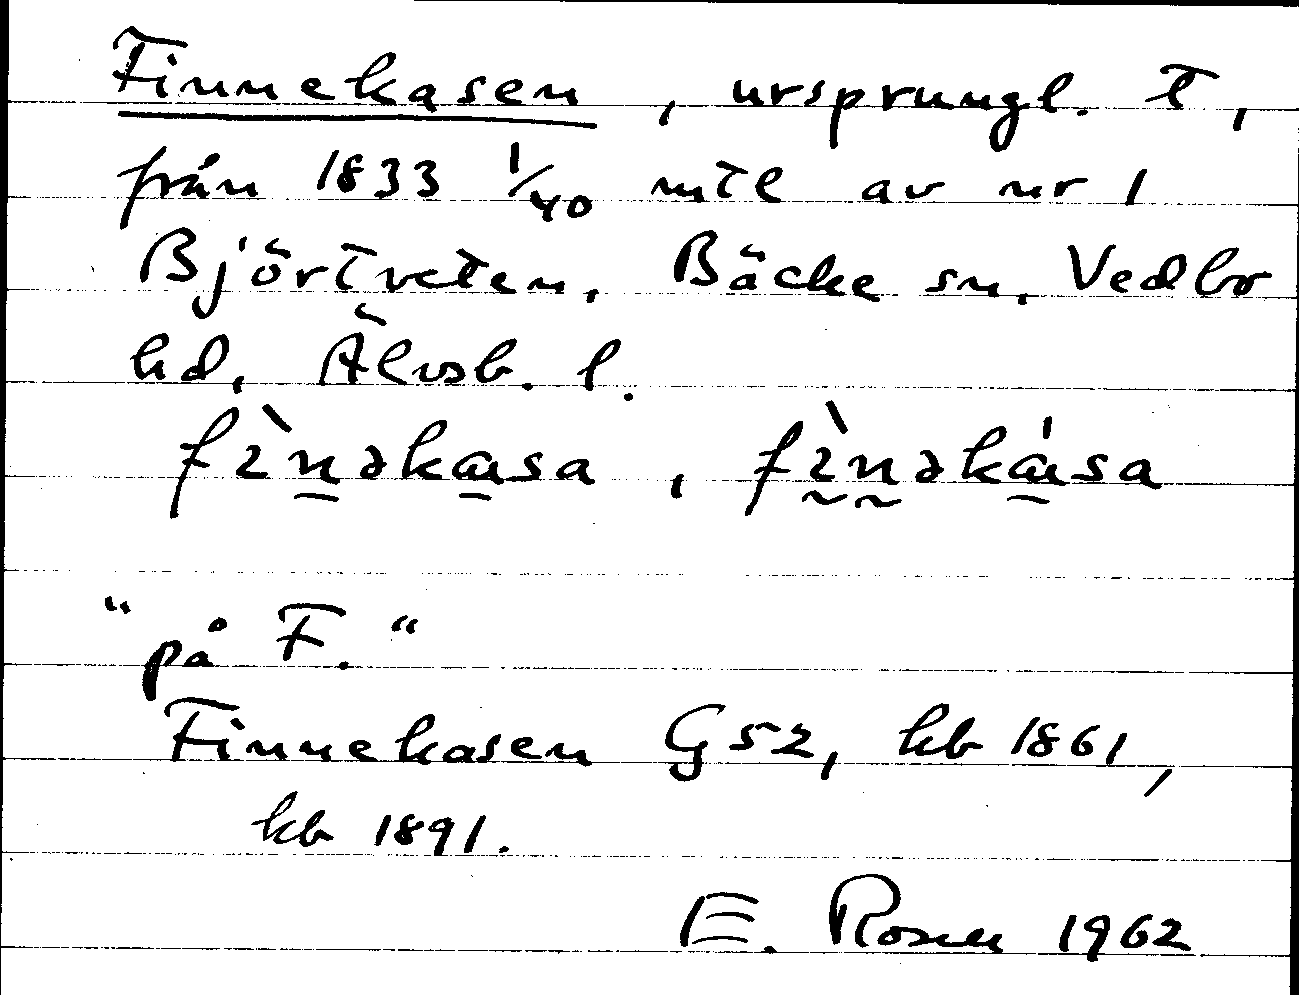 Finnekasen, ursprungl. t,
från 1833 1/40 mtl av nr 1
Björtveten, Bäcke sn, Vedbo
hd, Älvsb. l.
fìnəkasa, fìnəkása
"på F."
Finnekasen G52, kb 1861,
kb 1891.
E. Rosell 1962